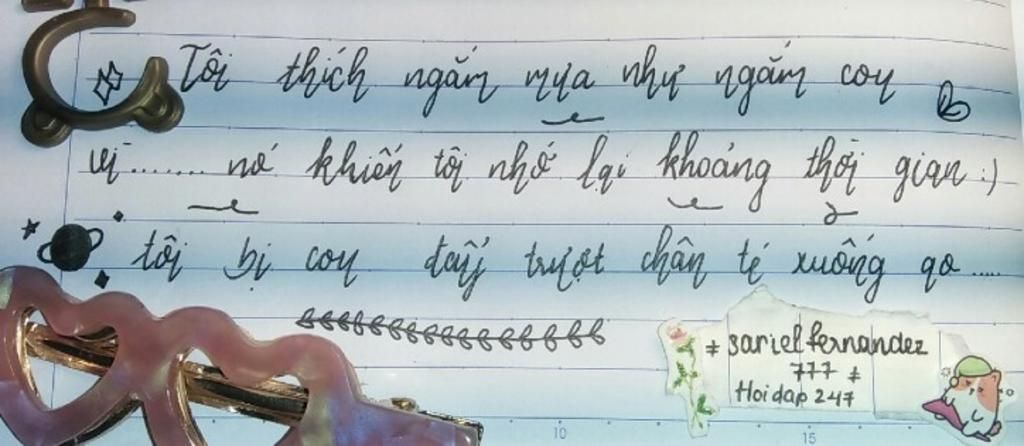 Tôi thích ngắm mưa như ngắm cou
vì........ nó khiến tôi nhớ lại khoảng thời gian :)
tôi bị cou đẩy trượt chân té xuống ao.....
# sariel fernandez
777 #
Hoidap 247
10
15